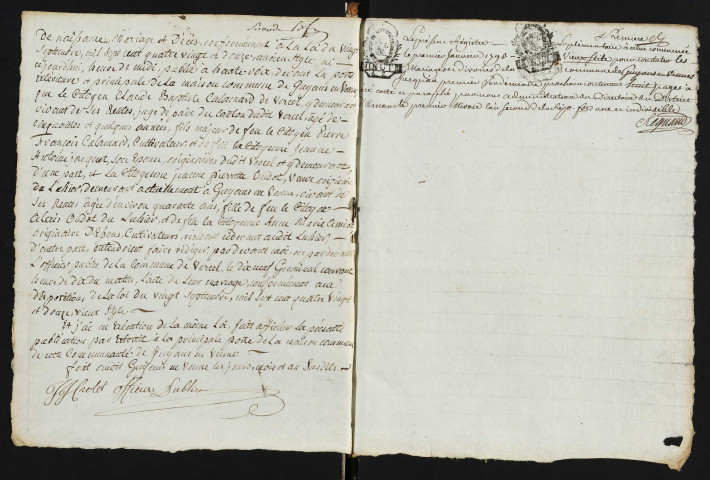 Seconde
De naissance, Mariage et Décès, conformément à La Loi du Vingt
Septembre, mil Sept cent quatre vingt et douze, ancien style, ai
cejourd'hui, heure de midi, publié à haute voix, devant La porte
et principale de la maison commune de Guyans en Vennes
que Le Citoyen Claude Baptiste de Vercel, y demeurant
vivant de Ses Rentes, juge de paix du Canton dudit Vercel, âgé de
cinquante et quelques années, fils majeur de feu Le Citoyen Pierre
François Cultivateur, et de feu La Citoyenne Jeanne
Antoine jacquet, Son Epouse, originaires dudit Vercel et y demeurant
D'une part, et La Citoyenne jeanne pierrette Oudot, Veuve originaire
de Luhier, demeurant actuellement à Guyans en Vennes, vivant de
Ses Rentes, âgée d'environ quarante ans, fille de feu Le Citoyen
Alexis Oudot du Luhier, et de feu La Citoyenne Anne Marie
originaire Cultivateurs, résidant audit Luhier
D'autre part, entendoient faire rédiger, pardevant moi, ou pardevant
L'officier public de La Commune de Vercel, le dix neuf Germinal courant
heure de dix du matin, L'acte de Leur mariage, conformément aux
dispositions de La Loi du vingt Septembre, mil Sept cent quatre Vingt
et Douze, vieux Style. —
Et j'ai en Exécution de La même Loi, fait afficher La présente
publication par Extrait à La principale porte de La maison commune
de cette Communauté de Guyans en Vennes
fait audit Guyans en Vennes Les jour, mois et an Susdits. —
officier public
Le présent Registre
Supplémentaire à celui commencé
Le premier janvier 1793
Vieux Stile, pour constater Les
Mariages, divorces de la
commune de Guyans en Vennes
jusqu'au premier Vendémiaire prochain contenant pages a
été cotté et paraphé par nous administrateur du Directoire du District
premier L'an Second de La Rép. f.se une et indivisible.
Regnaud